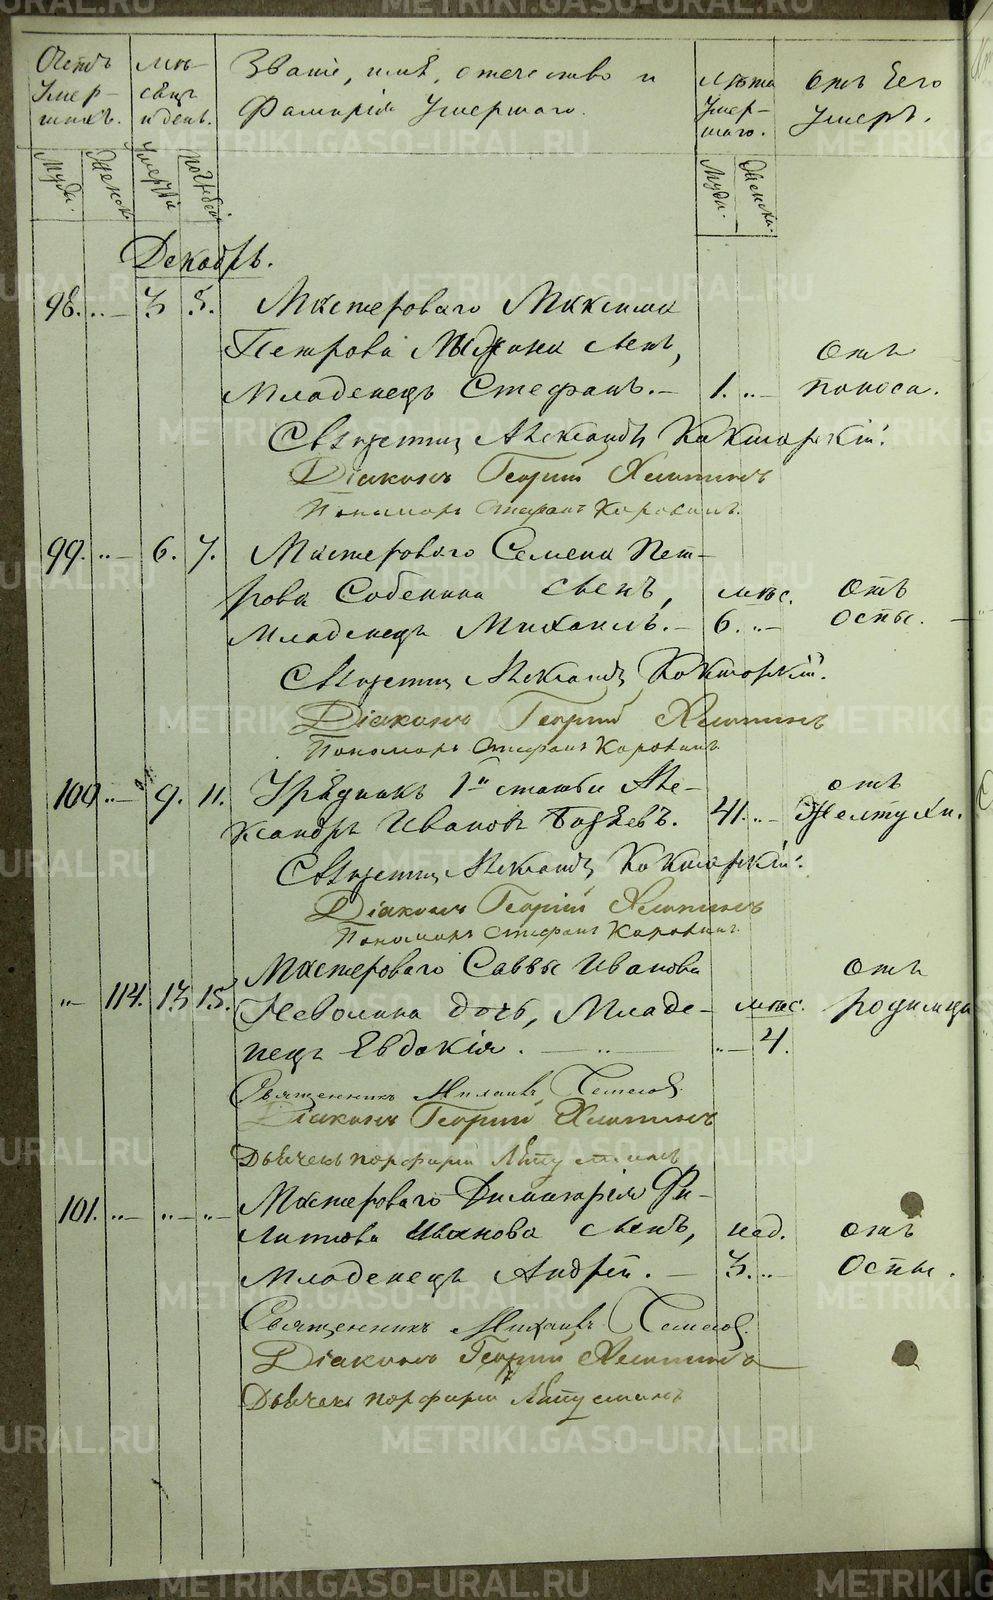 METRIKI.GASO-URAL.RU
Счетъ умер-шихъ.
Мѣ-сяцъ и день.
Званіе, имя, отечество и
Фамилія Умершаго.
Лѣта Умер-шаго.
Отъ чего Умеръ.
Муж. Женск. Умертв. Погребен. Муж. Женска.
Декабрь.
98. „ — 3 5. Мастероваго Максима
Петрова сынъ, Отъ
Младенецъ Стефанъ. — 1. „ — поноса.
Священникъ Александръ Кокшарскій.
Діаконъ Георгій
Пономарь Стефанъ Коровинъ.
99. „ — 6. 7. Мастероваго Семена Пет-
рова Собенина сынъ, мѣс. Отъ
Младенецъ Михаилъ. — 6. „ — Оспы. —
Священникъ Александръ Кокшарскій.
Діаконъ Георгій
Пономарь Стефанъ Коровинъ
100. „ — 9. 11. Урядникъ 1й статьи Але- отъ
ксандръ Ивановъ 41. „ — Желтухи.
Священникъ Александръ Кокшарскій.
Діаконъ Георгій
Пономарь Стефанъ Коровинъ
Мастероваго Саввы Иванова Отъ
„ — 114. 13. 15. Неволина дочь, Младе- мѣс. родимца
нецъ Евдокія. — „ — „ — 4.
Священникъ Михаилъ
Діаконъ Георгій
Дьячекъ Порфирій
101. „ — „ — „ — Мастероваго Димитрія Фи-
липпова Иванова сынъ, нед. отъ
Младенецъ Андрей. — 3. „ — Оспы.
Священникъ Михаилъ
Діаконъ Георгій
Дьячекъ Порфирій